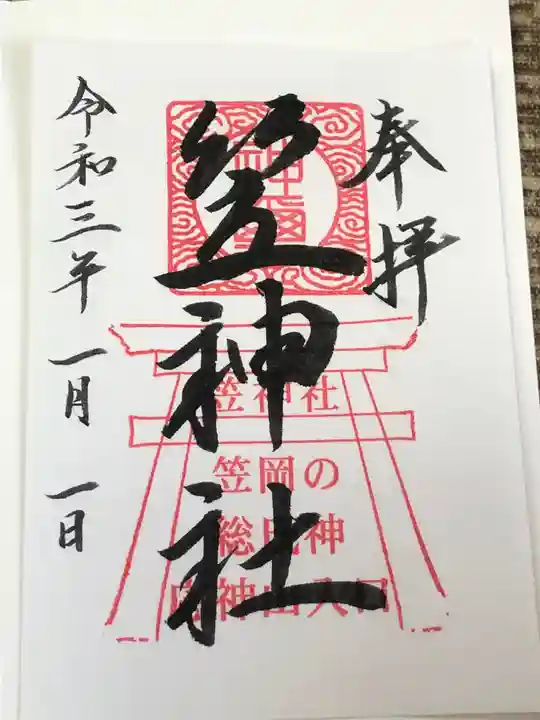 奉拝
笠神社
令和三年 一月 一日
笠神社
笠岡の
総氏神
神山入口